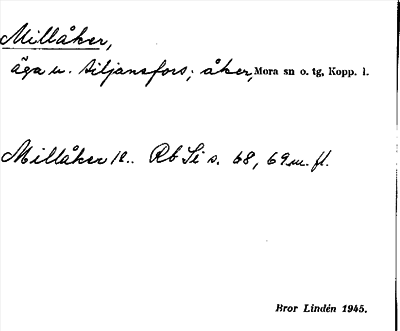 Millåker,
äga u. Siljansfors; åker, Mora sn o. tg, Kopp. l.
Millåker R.. Rb Si s. 68, 69 m. fl.
Bror Lindén 1945.